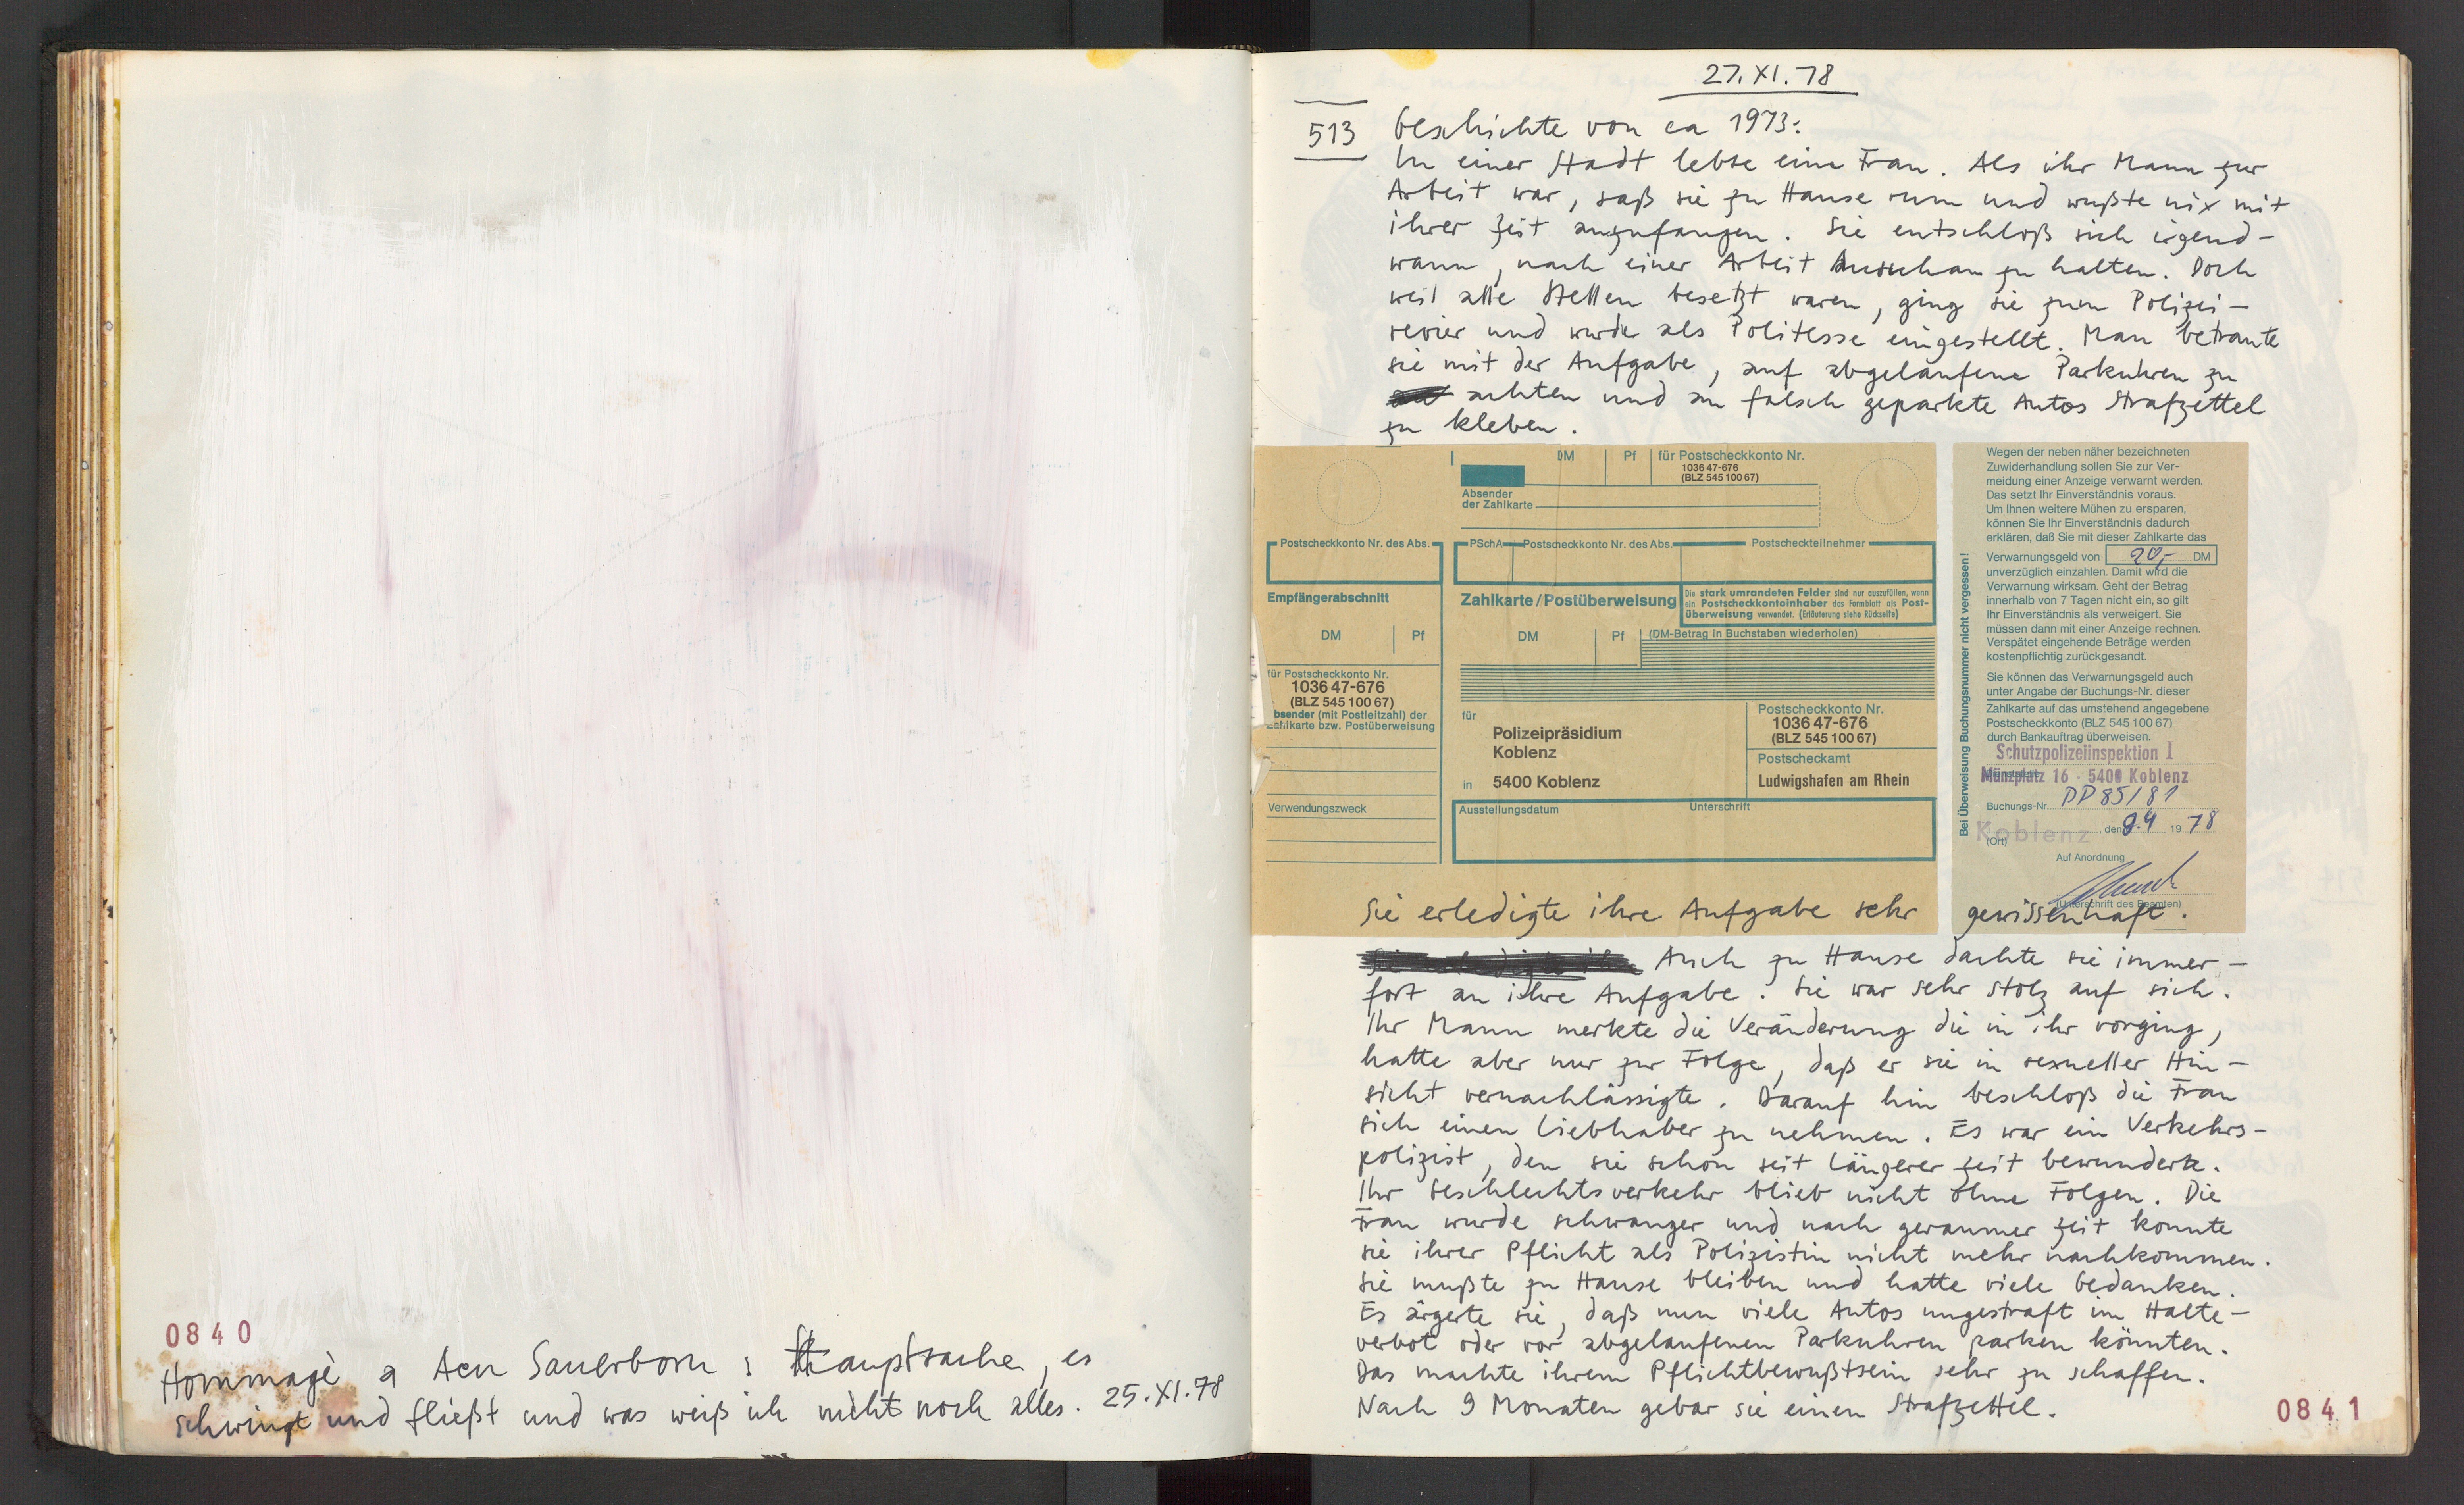 0840
Hommagè a Acu Sauerborn : Hauptsache, es
schwingt und fließt und was weiß ich nicht noch alles. 25.XI.78
27.XI.78
513
Geschichte von ca 1973:
In einer Stadt lebte eine Frau. Als ihr Mann zur
Arbeit war, saß sie zu Hause rum und wußte nix mit
ihrer Zeit anzufangen. Sie entschloß sich irgend-
wann, nach einer Arbeit Ausschau zu halten. Doch
weil alle Stellen besetzt waren, ging sie zum Polizei-
revier und wurde als Politesse eingestellt. Man betraute
sie mit der Aufgabe, auf abgelaufene Parkuhren zu
achten und an falsch geparkte Autos Strafzettel
zu kleben.
DM Pf für Postscheckkonto Nr.
1036 47-676
(BLZ 545 100 67)
Absender
der Zahlkarte
Postscheckkonto Nr. des Abs.
PSchA Postscheckkonto Nr. des Abs. Postscheckteilnehmer
Empfängerabschnitt
Zahlkarte/Postüberweisung
Die stark umrandeten Felder sind nur auszufüllen, wenn
ein Postscheckkontoinhaber das Formblatt als Post-
überweisung verwendet. (Erläuterung siehe Rückseite)
DM Pf
DM Pf (DM-Betrag in Buchstaben wiederholen)
für Postscheckkonto Nr.
1036 47-676
(BLZ 545 100 67)
bsender (mit Postleitzahl) der
Zahlkarte bzw. Postüberweisung
Verwendungszweck
für
Polizeipräsidium
Koblenz
in 5400 Koblenz
Postscheckkonto Nr.
1036 47-676
(BLZ 545 100 67)
Postscheckamt
Ludwigshafen am Rhein
Ausstellungsdatum Unterschrift
Bei Überweisung Buchungsnummer nicht vergessen!
Wegen der neben näher bezeichneten
Zuwiderhandlung sollen Sie zur Ver-
meidung einer Anzeige verwarnt werden.
Das setzt Ihr Einverständnis voraus.
Um Ihnen weitere Mühen zu ersparen,
können Sie Ihr Einverständnis dadurch
erklären, daß Sie mit dieser Zahlkarte das
Verwarnungsgeld von 20,- DM
unverzüglich einzahlen. Damit wird die
Verwarnung wirksam. Geht der Betrag
innerhalb von 7 Tagen nicht ein, so gilt
Ihr Einverständnis als verweigert. Sie
müssen dann mit einer Anzeige rechnen.
Verspätet eingehende Beträge werden
kostenpflichtig zurückgesandt.
Sie können das Verwarnungsgeld auch
unter Angabe der Buchungs-Nr. dieser
Zahlkarte auf das umstehend angegebene
Postscheckkonto (BLZ 545 100 67)
durch Bankauftrag überweisen.
Schutzpolizeiinspektion I
Münzplatz 16 - 5400 Koblenz
Buchungs-Nr. PP 85/81
Koblenz, den 9.4 1978
(Ort)
Auf Anordnung
(Unterschrift des Beamten)
Sie erledigte ihre Aufgabe sehr gewissenhaft.
Auch zu Hause dachte sie immer-
fort an ihre Aufgabe. Sie war sehr stolz auf sich.
Ihr Mann merkte die Veränderung die in ihr vorging,
hatte aber nur zur Folge, daß er sie in sexueller Hin-
sicht vernachlässigte. Darauf hin beschloß die Frau
sich einen Liebhaber zu nehmen. Es war ein Verkehrs-
polizist, den sie schon seit längerer Zeit bewunderte.
Ihr Geschlechtsverkehr blieb nicht ohne Folgen. Die
Frau wurde schwanger und nach geraumer Zeit konnte
sie ihrer Pflicht als Polizistin nicht mehr nachkommen.
Sie mußte zu Hause bleiben und hatte viele Gedanken.
Es ärgerte sie, daß nun viele Autos ungestraft im Halte-
verbot oder vor abgelaufenen Parkuhren parken könnten.
Das machte ihrem Pflichtbewußtsein sehr zu schaffen.
Nach 9 Monaten gebar sie einen Strafzettel.
0841